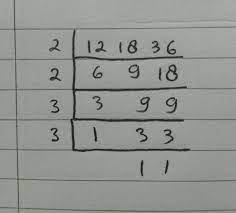 2 12 18 36
2 6 9 18
3 3 9 9
3 1 3 3
1 1